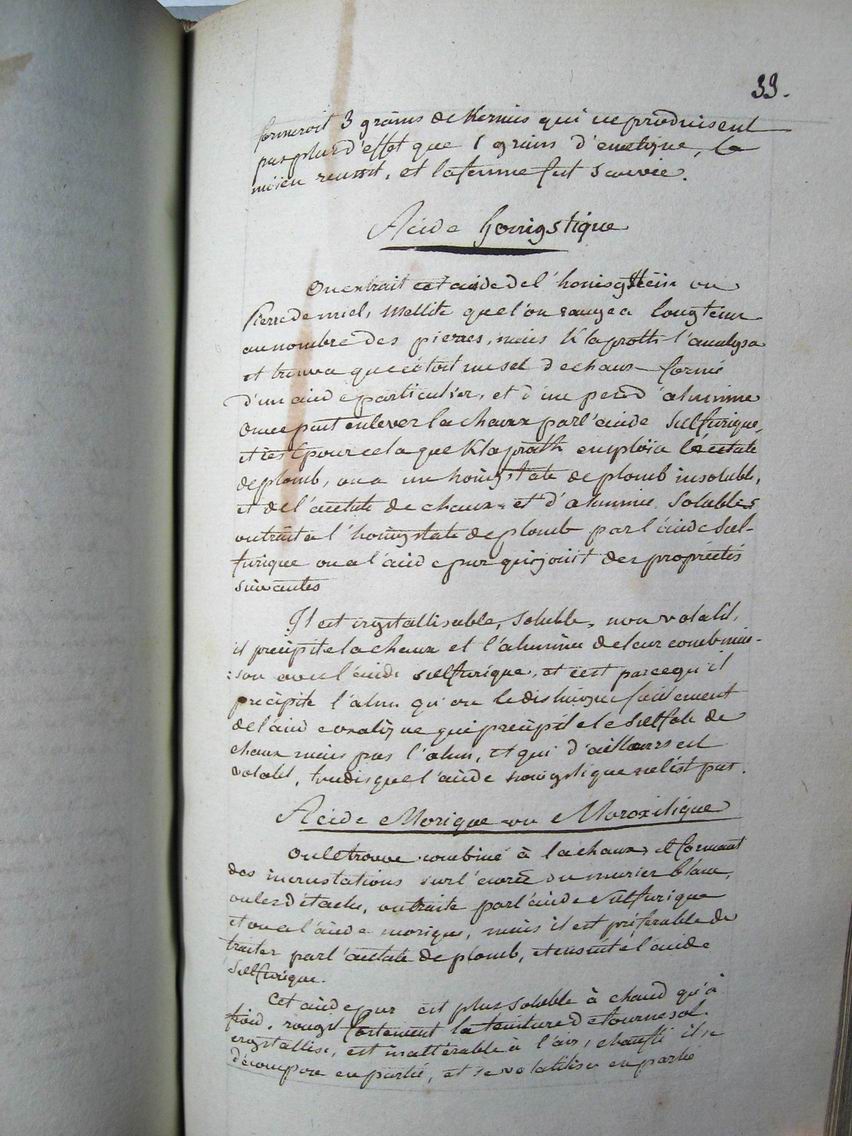 33.
formeroit 3 grains de Kermes qui ne produisent
pas plus d'effet que 1 grain d'emetique, le
mien reussit, et la femme fut sauvée.
Acide honigstique
On extrait cet acide de l'honigstein ou
Pierre de miel, Mellite que l'on rangea longtems
au nombre des pierres, mais Klaproth l'analysa
et trouva que c'étoit un sel de chaux formé
d'un acide particulier, et d'un peu d'alumine
On ne peut enlever la chaux par l'acide sulfurique,
et c'est pour cela que Klaproth employa l'acétate
de plomb, on a un honigstate de plomb insoluble,
et de l'acetate de chaux et d'alumine solubles
on traite l'honigstate de plomb par l'acide sul-
furique on a l'acide pur qui jouit des propriétés
suivantes
Il est crystallisable, soluble, non volatil,
il précipite la chaux et l'alumine de leur combinai-
:son avec l'acide sulfurique, et c'est parcequ'il
precipite l'alun qu'on le distingue facilement
de l'acide oxalique qui precipite le sulfate de
chaux mais pas l'alun, et qui d'ailleurs est
volatil, tandisque l'acide honigstique ne l'est pas.
Acide Morique ou Moroxilique
On le trouve combiné à la chaux, et formant
des incrustations sur l'écorce du murier blanc,
on les détache, on traite par l'acide sulfurique
et on a l'acide morique, mais il est préférable de
traiter par l'acétate de plomb, et ensuite l'acide
sulfurique.
Cet acide pur est plus soluble à chaud qu'à
froid, rougit fortement la teinture de tournesol
crystallise, est inaltérable à l'air, chauffé il se
décompose en partie, et se volatilise en partie